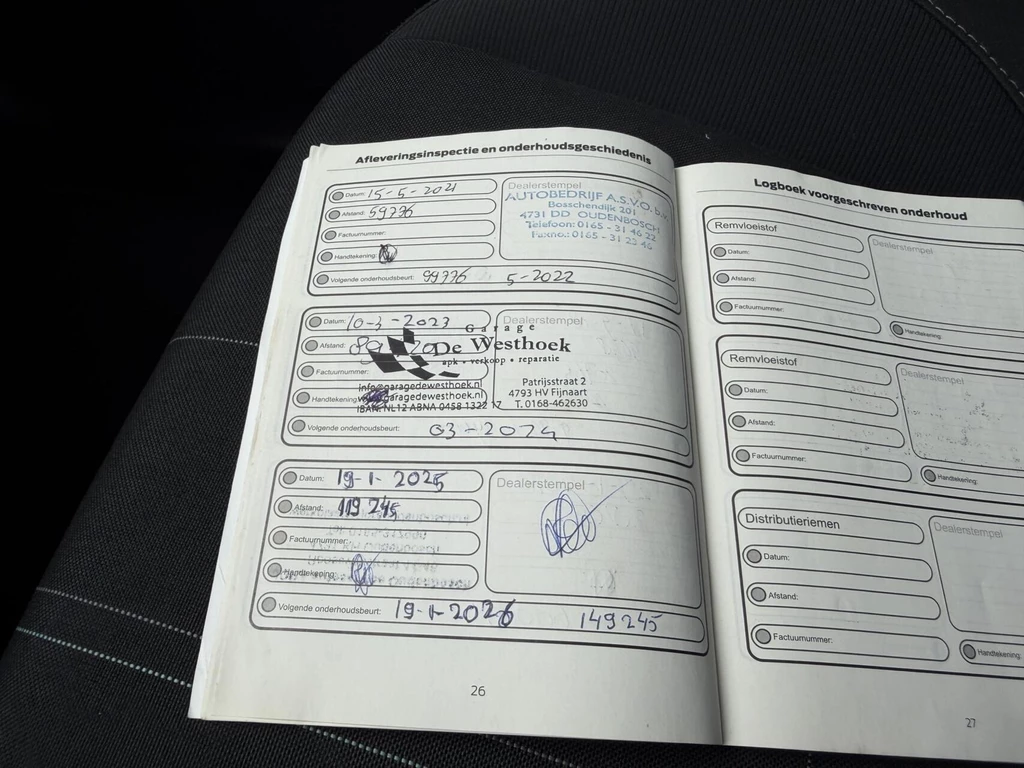 Afleveringsinspectie en onderhoudsgeschiedenis
Datum: 15-5-2021
Afstand: 59776
Factuurnummer:
Handtekening:
Volgende onderhoudsbeurt: 99776 5-2022
Dealerstempel
AUTOBEDRIJF A.S.V.O. b.v.
Boaschendijk 201
4731 DD OUDENBOSCH
Telefoon: 0165 - 31 46 22
Faxno.: 0165 - 31 23 46
Datum: 10-3-2023
Afstand:
Factuurnummer:
Handtekening:
Volgende onderhoudsbeurt: 03-2024
Dealerstempel
Garage
De Westhoek
apk • verkoop • reparatie
info@garagedewesthoek.nl
www.garagedewesthoek.nl
IBAN: NL12 ABNA 0458 1322 17
Patrijsstraat 2
4793 HV Fijnaart
T. 0168-462630
Datum: 19-1-2025
Afstand: 119245
Factuurnummer:
Handtekening:
Volgende onderhoudsbeurt: 19-1-2026 149245
Dealerstempel
26
Logboek voorgeschreven onderhoud
Remvloeistof
Datum:
Afstand:
Factuurnummer:
Dealerstempel
Handtekening:
Remvloeistof
Datum:
Afstand:
Factuurnummer:
Dealerstempel
Handtekening:
Distributieriemen
Datum:
Afstand:
Factuurnummer:
Dealerstempel
Handtekening:
27